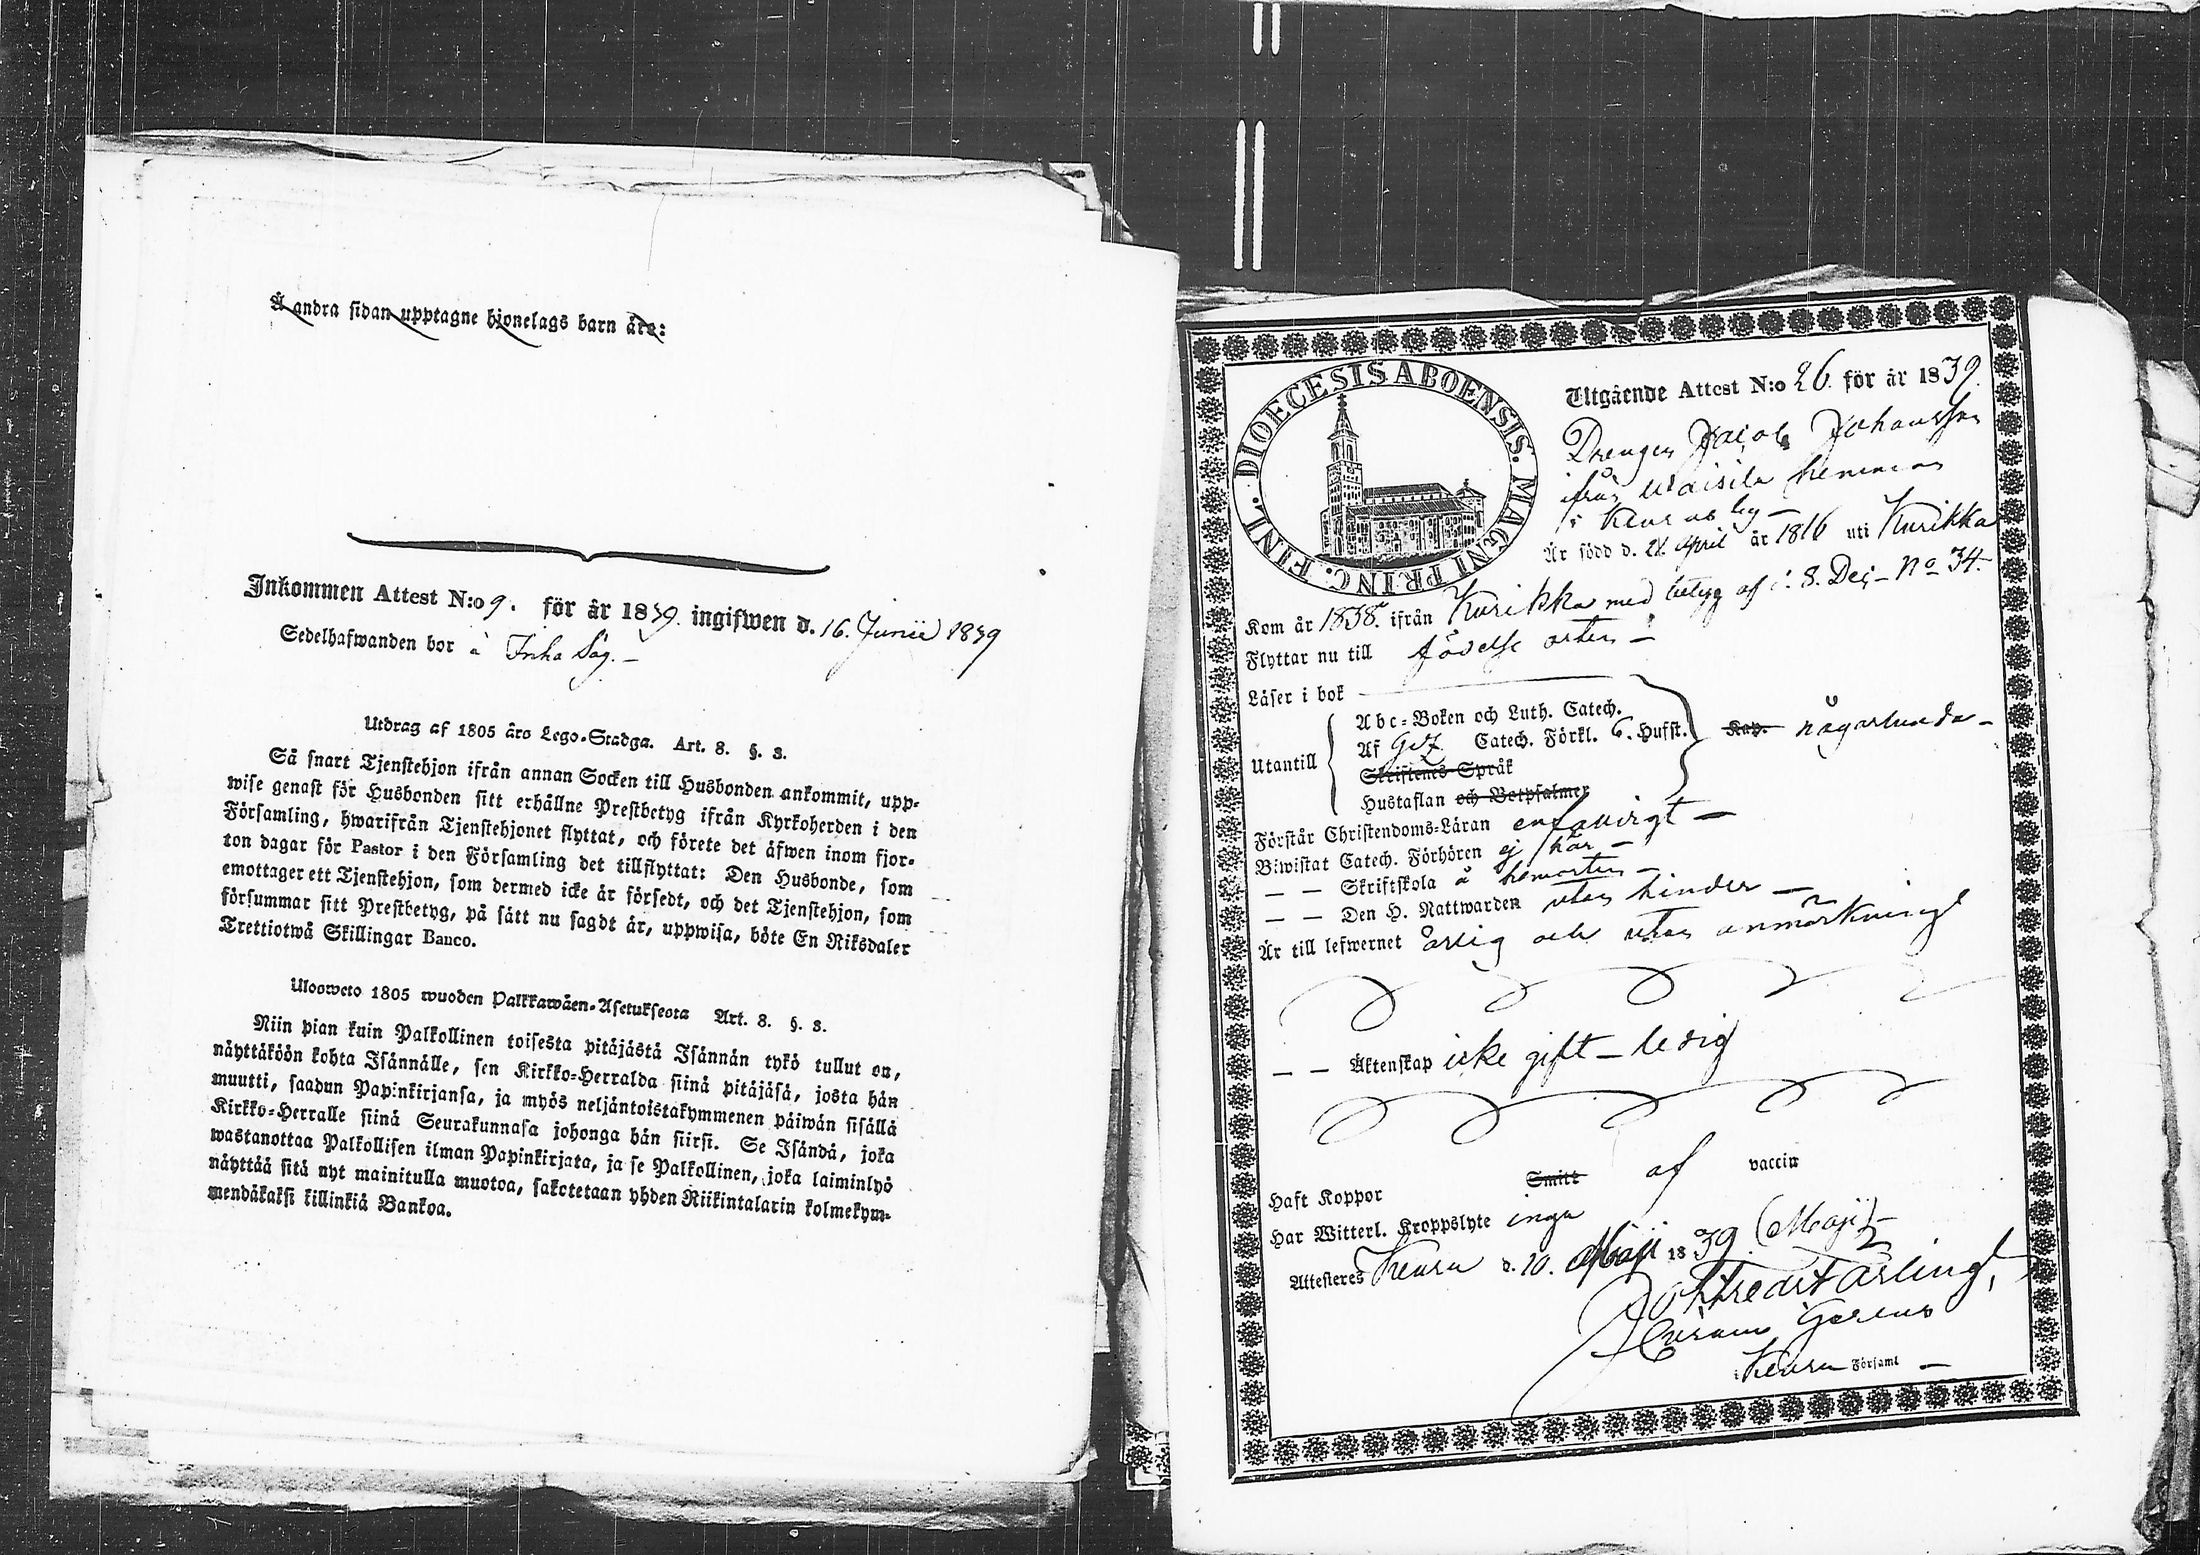 Å andra sidan upptagne hjonelags barn äro:
Inkommen Attest N:o 9. för år 1839. ingifwen d. 16. Junii 1839
Sedelhafwanden bor å Inha Såg. –
Utdrag af 1805 års Lego-Stadga. Art. 8. §. 3.
Så snart Tjenstehjon ifrån annan Socken till Husbonden ankommit, upp-
wise genast för Husbonden sitt erhållne Prestbetyg ifrån Kyrkoherden i den
Församling, hwarifrån Tjenstehjonet flyttat, och förete det äfwen inom fjor-
ton dagar för Pastor i den Församling det tillflyttat: Den Husbonde, som
emottager ett Tjenstehjon, som dermed icke är försedt, och det Tjenstehjon, som
försummar sitt Prestbetyg, på sätt nu sagdt är, uppwisa, böte En Riksdaler
Trettiotwå Skillingar Banco.
Ulosweto 1805 wuoden Palkkawäen-Asetuksesta Art. 8. §. 3.
Niin pian kuin Palkollinen toisesta pitäjästä Isännän tykö tullut on,
näyttäköön kohta Isännälle, sen Kirkko-Herralda siinä pitäjäsä, josta hän
muutti, saadun Papinkirjansa, ja myös neljäntoistakymmenen päiwän sisällä
Kirkko-Herralle siinä Seurakunnasa johonga hän siirsi. Se Isändä, joka
wastanottaa Palkollisen ilman Papinkirjata, ja se Palkollinen, joka laiminlyö
näyttää sitä nyt mainitulla muotoa, sakotetaan yhden Riikintalarin kolmekym-
mendäkaksi killinkiä Bankoa.
DIOECESIS ABOENSIS. MAGNI PRINC. FINL.
Utgående Attest N:o 26. för år 1839.
Drengen Jacob Johansson
ifrån hemman
i by –
Är född d. april år 1816 uti Kurikka
Kom år 1838. ifrån Kurikka med betyg af d. 8. Dec – No 34.
Flyttar nu till födelse orten –
Läser i bok
Utantill
Abc-Boken och Luth. Catech.
Af Catech. Förkl. 6. Hufst.
Skriftenes Språk
Hustaflan och Botpsalmer
Kap. någorlunda –
Förstår Christendoms-Läran enfaldigt –
Biwistat Catech. Förhören ej här –
– – Skriftskola å hemorten –
– – Den H. Nattwarden utan hinder –
Är till lefwernet ärlig och utan anmärkning
– – Äktenskap icke gift – ledig
Haft Koppor Smitt af vaccin
Har Witterl. Kroppslyte inga
Attesteres Keuru d. 10. Maji 1839 (Maji) –
Keuru Församl –